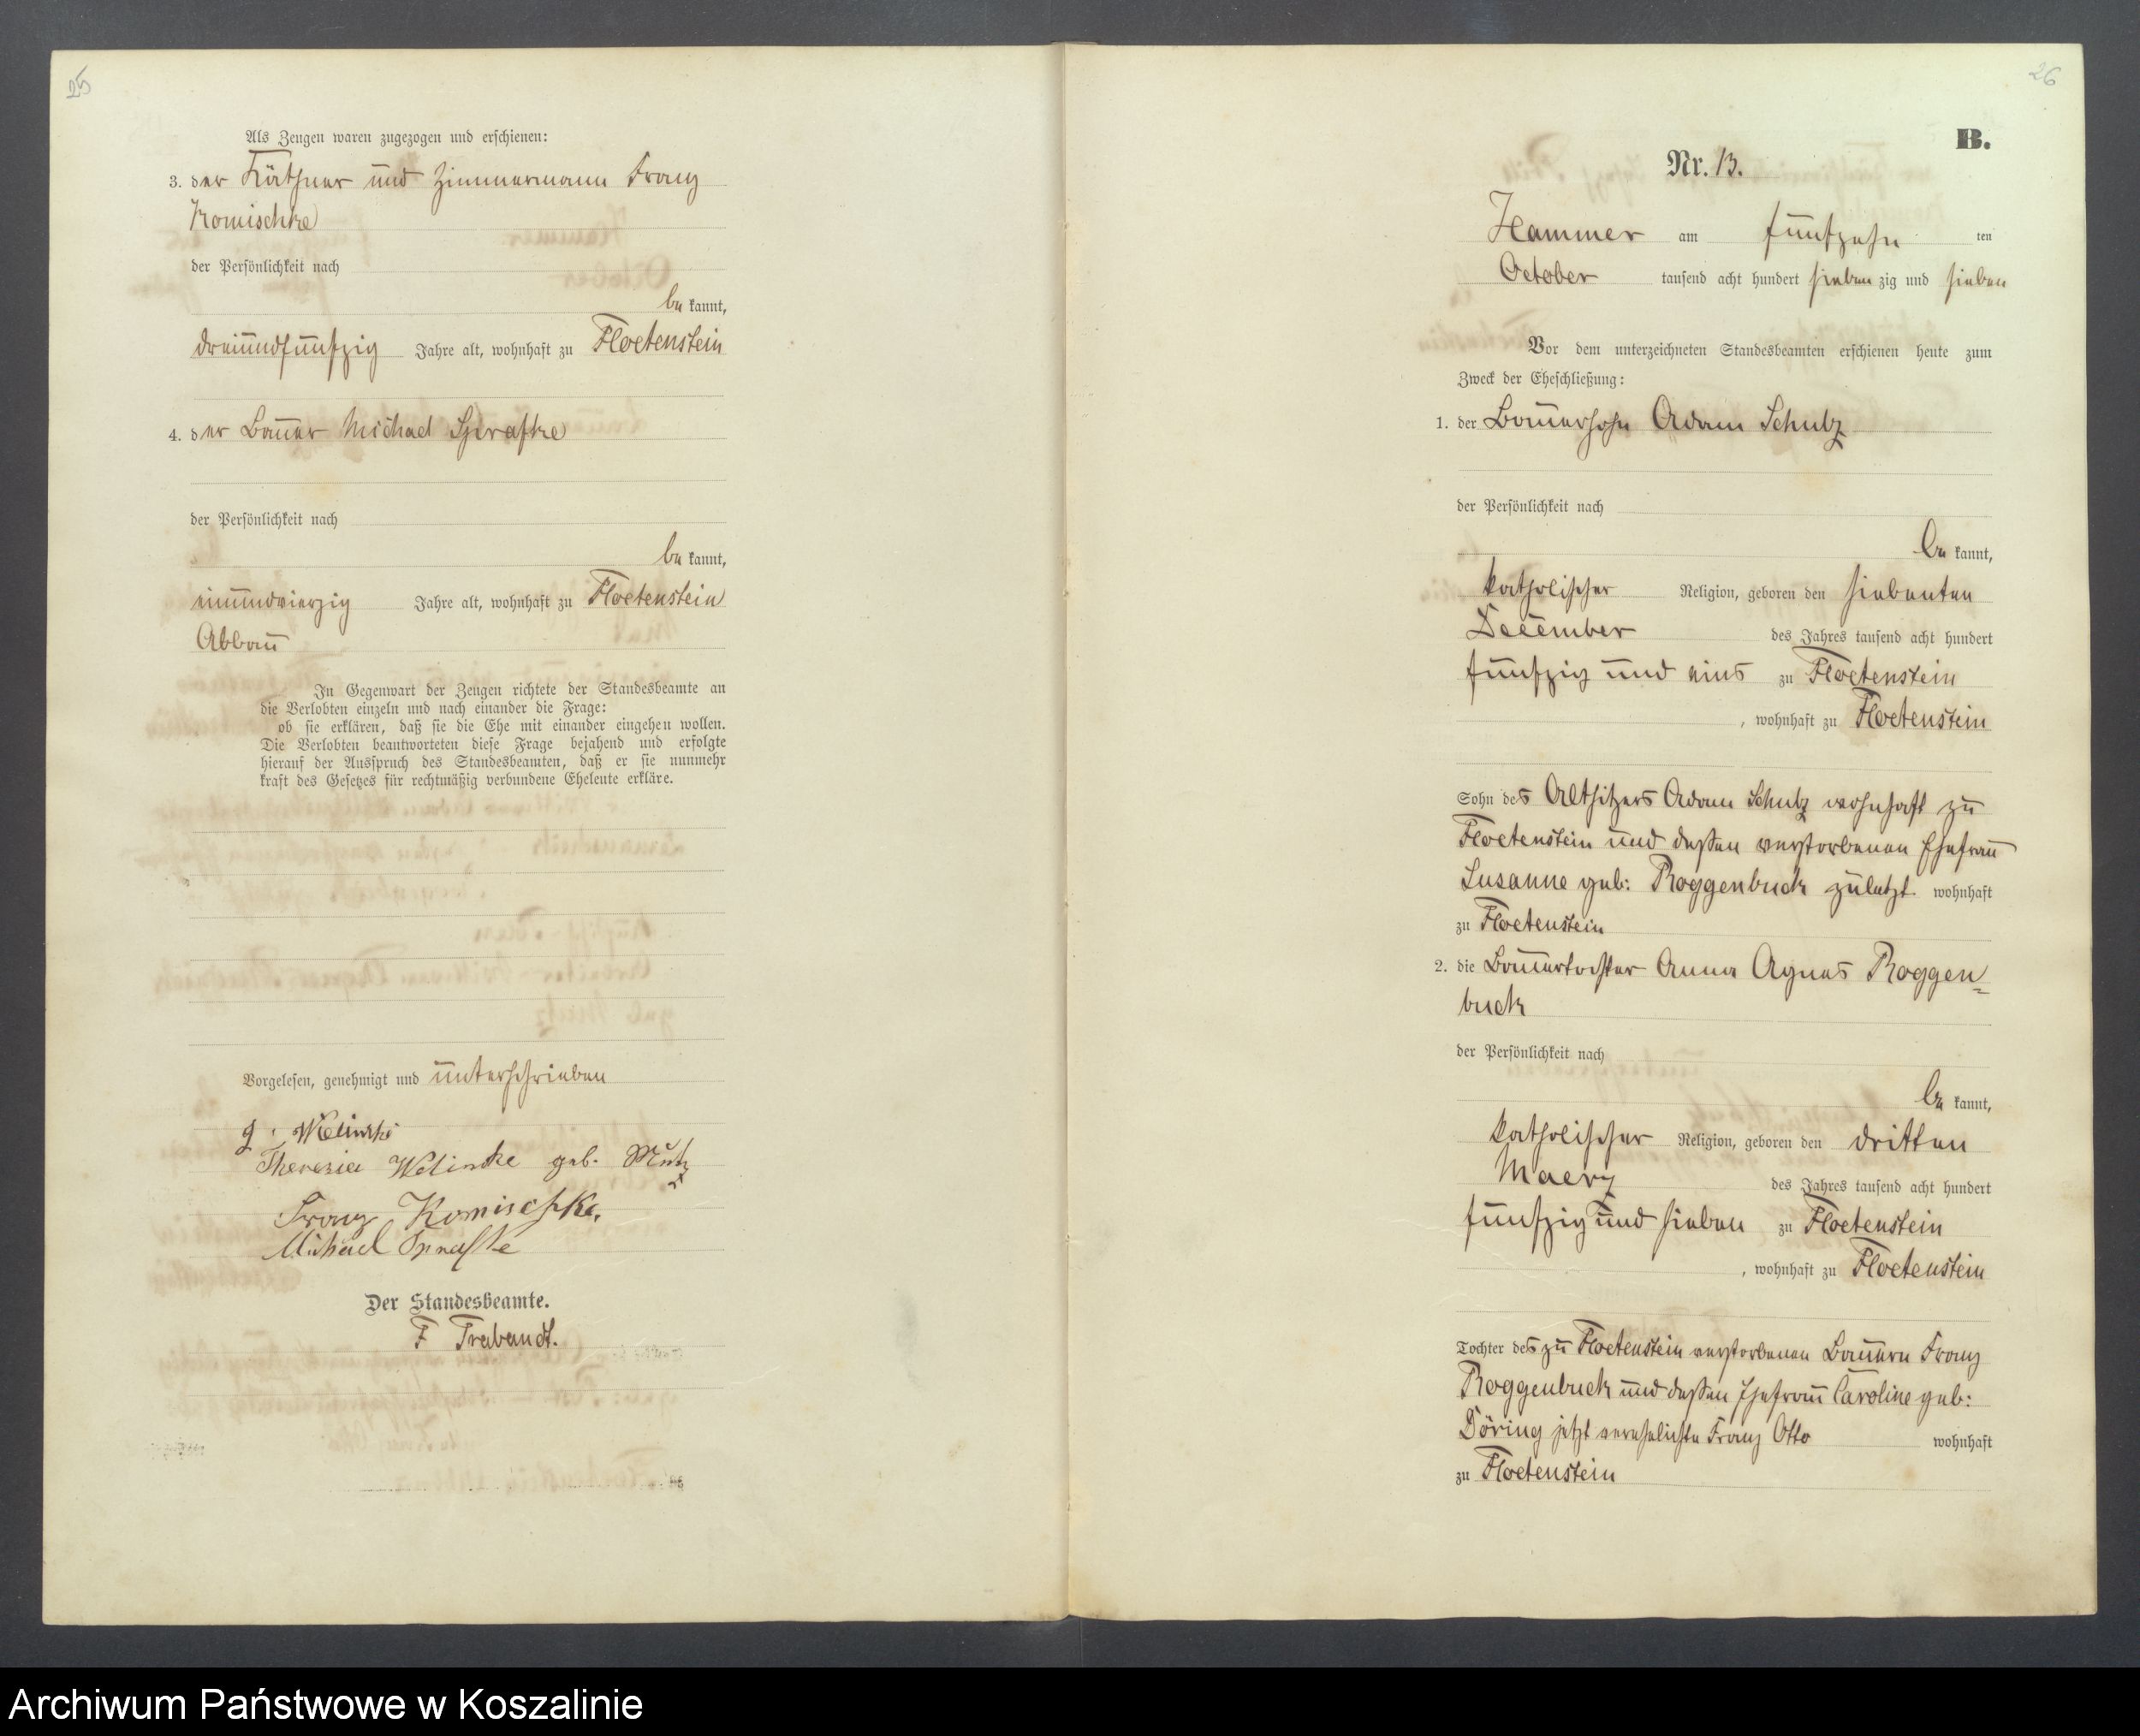 25
Als Zeugen waren zugezogen und erschienen:
3. der Käthner und Zimmermann Franz
Komischke
der Persönlichkeit nach
be kannt,
dreiundfünfzig Jahre alt, wohnhaft zu Floetenstein
4. der Bauer Michael Sprafke
der Persönlichkeit nach
be kannt,
einundvierzig Jahre alt, wohnhaft zu Floetenstein
Abbau
In Gegenwart der Zeugen richtete der Standesbeamte an
die Verlobten einzeln und nach einander die Frage:
ob sie erklären, daß sie die Ehe mit einander eingehen wollen.
Die Verlobten beantworteten diese Frage bejahend und erfolgte
hierauf der Ausspruch des Standesbeamten, daß er sie nunmehr
kraft des Gesetzes für rechtmäßig verbundene Eheleute erkläre.
Vorgelesen, genehmigt und unterschrieben
Theresia geb.
Franz Komischke.
Michael Spraffke
Der Standesbeamte.
F Trabandt.
26
B.
Nr. 13.
Hammer am fünfzehn ten
October tausend acht hundert sieben zig und sieben
Vor dem unterzeichneten Standesbeamten erschienen heute zum
Zweck der Eheschließung:
1. der Bauersohn Adam Schulz
der Persönlichkeit nach
be kannt,
katholischer Religion, geboren den siebenten
December des Jahres tausend acht hundert
fünfzig und eins zu Floetenstein
, wohnhaft zu Floetenstein
Sohn des Altsitzers Adam Schulz wohnhaft zu
Floetenstein und dessen verstorbenen Ehefrau
Susanne geb: Roggenbuck zuletzt wohnhaft
zu Floetenstein
2. die Bauertochter Anna Agnes Roggen=
buck
der Persönlichkeit nach
be kannt,
katholischer Religion, geboren den dritten
Maerz des Jahres tausend acht hundert
fünfzig und sieben zu Floetenstein
, wohnhaft zu Floetenstein
Tochter des zu Floetenstein verstorbenen Bauern Franz
Roggenbuck und dessen Ehefrau Caroline geb:
Döring jetzt verehelichte Franz Otto wohnhaft
zu Floetenstein
Archiwum Państwowe w Koszalinie